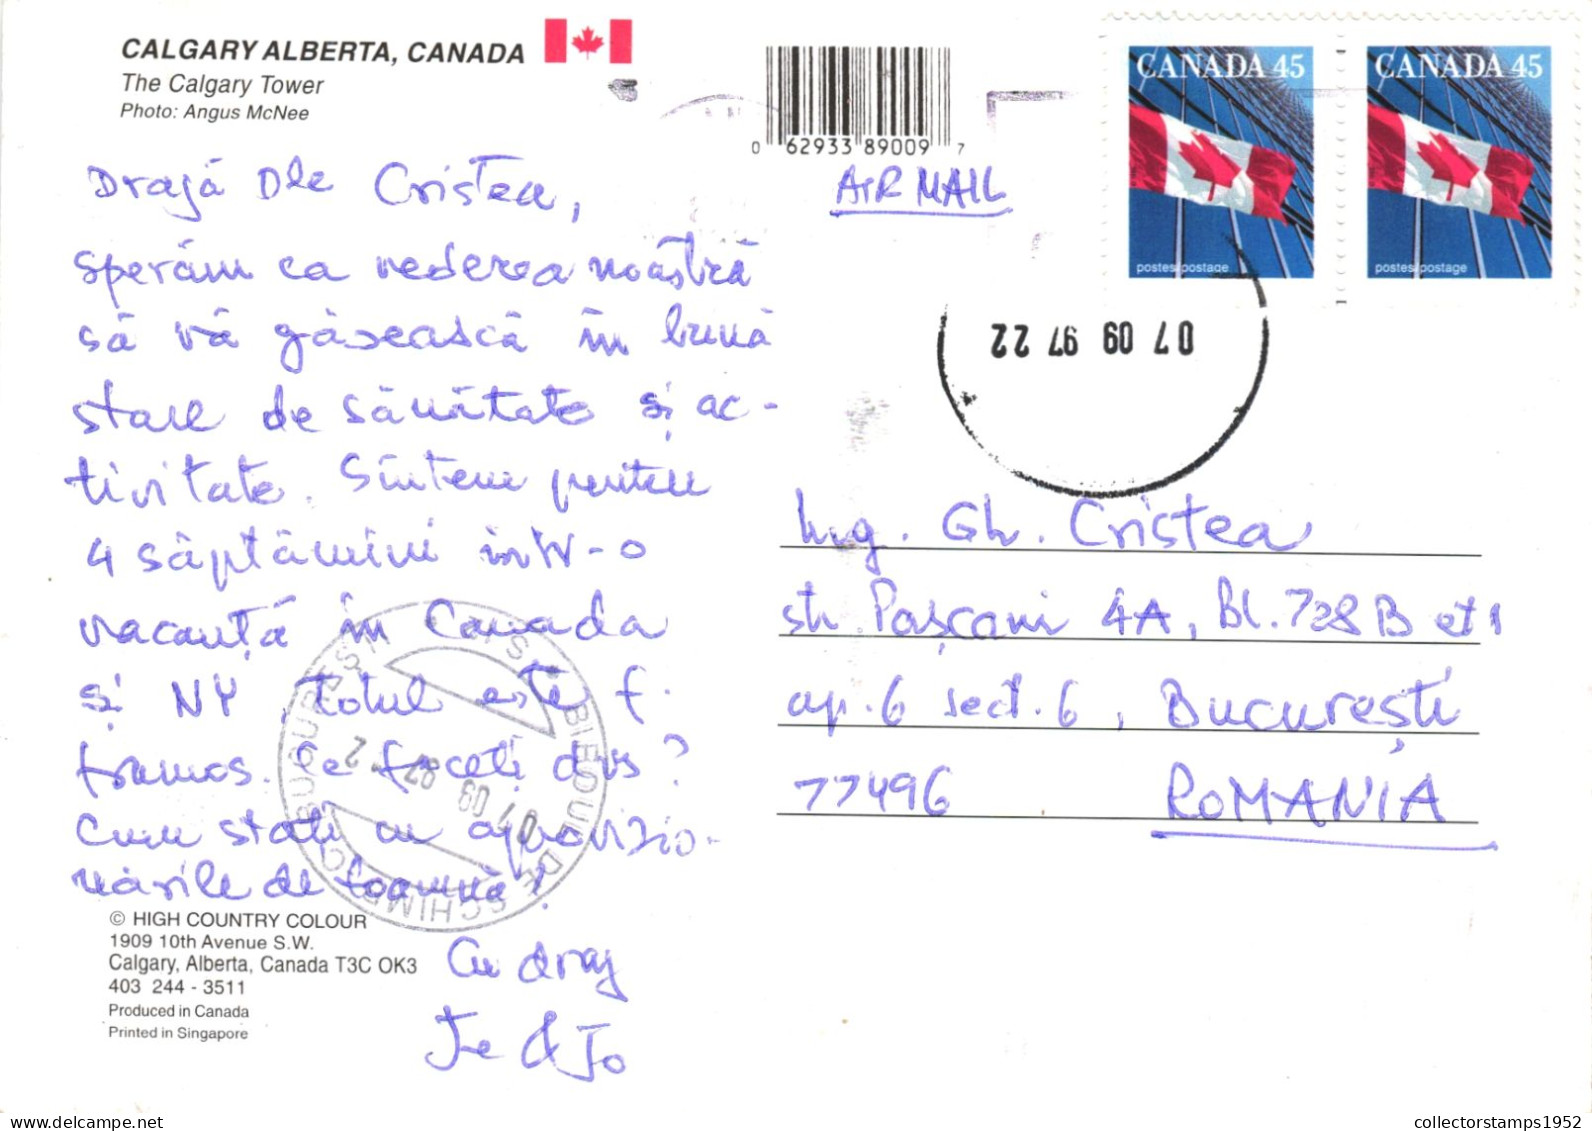 CALGARY ALBERTA, CANADA
The Calgary Tower
Photo: Angus McNee
0 62933 89009 7
CANADA 45
postes/postage
CANADA 45
postes/postage
AIR MAIL
07 09 97 22
Dragă Dle Cristea,
sperăm ca vederea noastră
să vă găsească în bună
stare de sănătate și ac-
tivitate. Sîntem pentru
4 săptămîni intr-o
vacanță în Canada
și NY, totul este f.
frumos. Ce faceți dvs?
Cum stați cu aprovizio-
nările de toamnă?
Cu drag
Je & Jo
Ing. Gh. Cristea
str. Pașcani 4A, Bl. 728B et 1
ap. 6 sect. 6, București
77496 ROMANIA
BIROUL DE SCHIMB
07 09 97
© HIGH COUNTRY COLOUR
1909 10th Avenue S.W.
Calgary, Alberta, Canada T3C OK3
403 244 - 3511
Produced in Canada
Printed in Singapore
collectorstamps1952